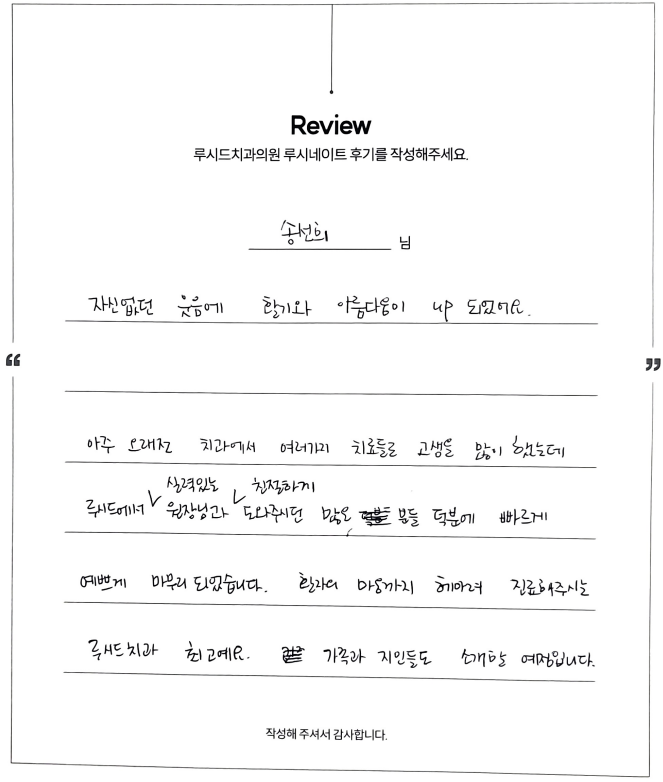 Review
루시드치과의원 루시네이트 후기를 작성해주세요.
송선희 님
자신없던 웃음에 활기와 아름다움이 up 되었어요.
“ ”
아주 오래전 치과에서 여러가지 치료들로 고생을 많이 했는데
실력있는 친절하게
루시드에서 원장님과 도와주시던 많은 분들 덕분에 빠르게
예쁘게 마무리 되었습니다. 환자의 마음까지 헤아려 진료해주시는
루시드치과 최고예요. 가족과 지인들도 소개할 예정입니다.
작성해 주셔서 감사합니다.